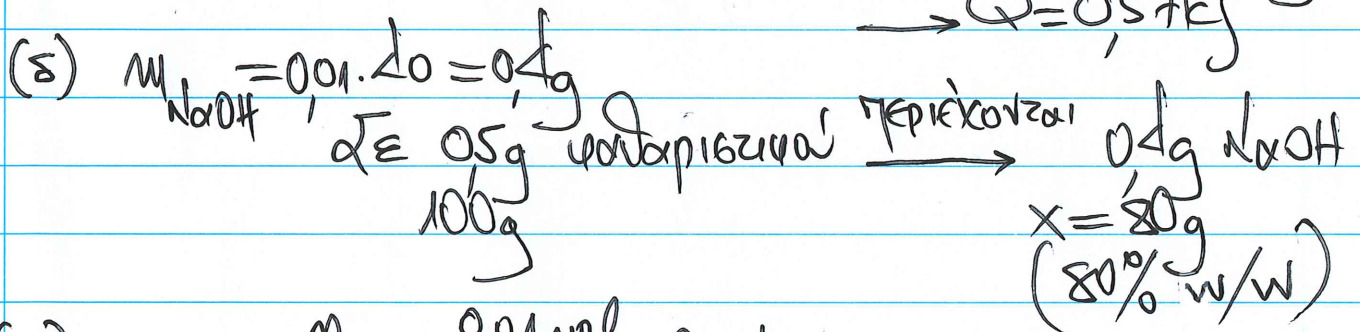 → Q = 0,57kJ
(δ) m NaOH = 0,01 . 40 = 0,4g
Σε 0,5g καθαριστικού περιέχονται → 0,4g NaOH
100g x = 80g
(80% w/w)
0,01mol